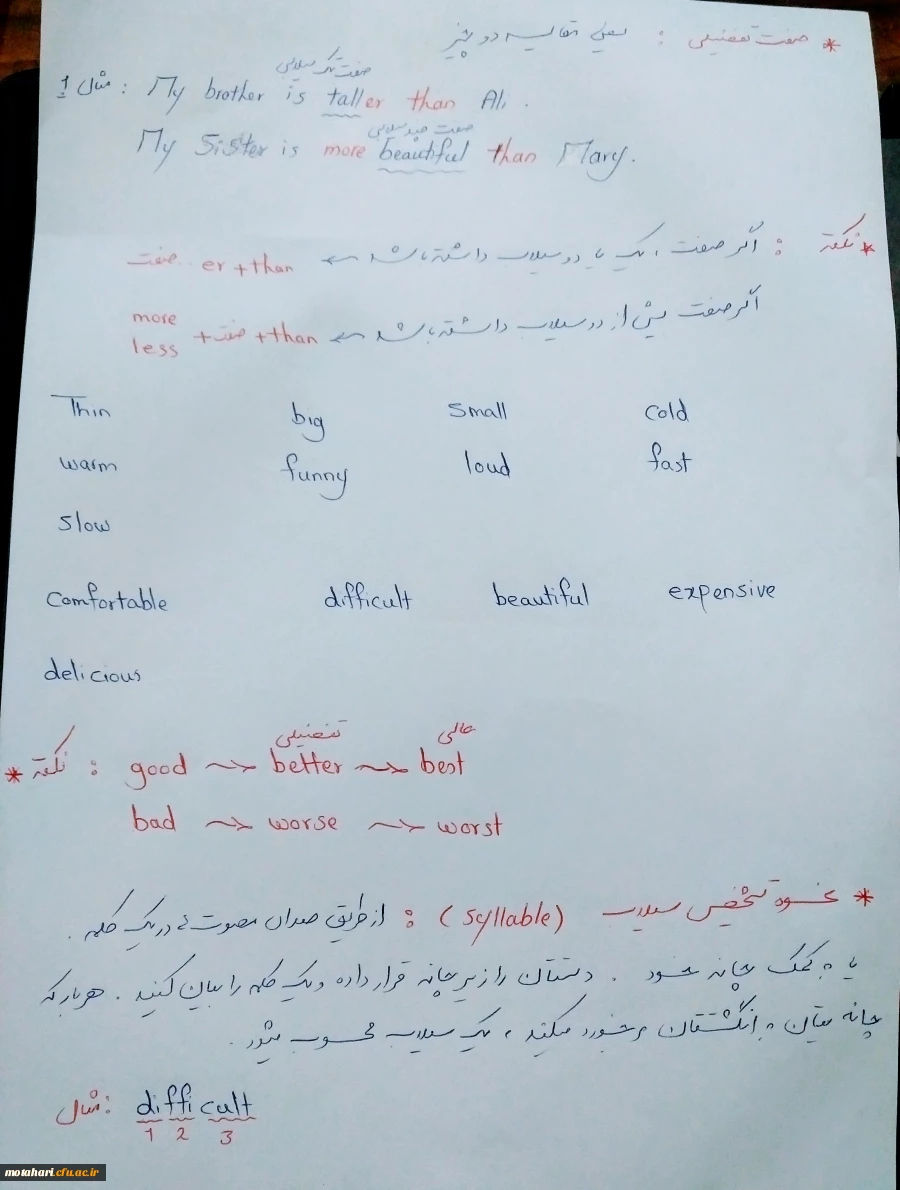 * صفت تفضیلی : یعنی مقایسه دو چیز
صفت تک سیلابی
مثال 1 : My brother is taller than Ali.
صفت چند سیلابی
My Sister is more beautiful than Mary.
* نکته : اگر صفت ، یک یا دو سیلاب داشته باشد ← صفت er + than
اگر صفت بیش از دو سیلاب داشته باشد ← more less + صفت + than
Thin big small cold
warm funny loud fast
slow
comfortable difficult beautiful expensive
delicious
تفضیلی عالی
* نکته : good → better → best
bad → worse → worst
* نحوه تشخیص سیلاب (syllable) : از طریق صدای مصوت در یک کلمه .
یا به کمک چانه خود . دستتان را زیر چانه قرار داده و یک کلمه را بیان کنید . هر بار که
چانه یتان به انگشتتان برخورد میکند ، یک سیلاب محسوب میشود .
مثال : difficult
1 2 3
motahari.cfu.ac.ir